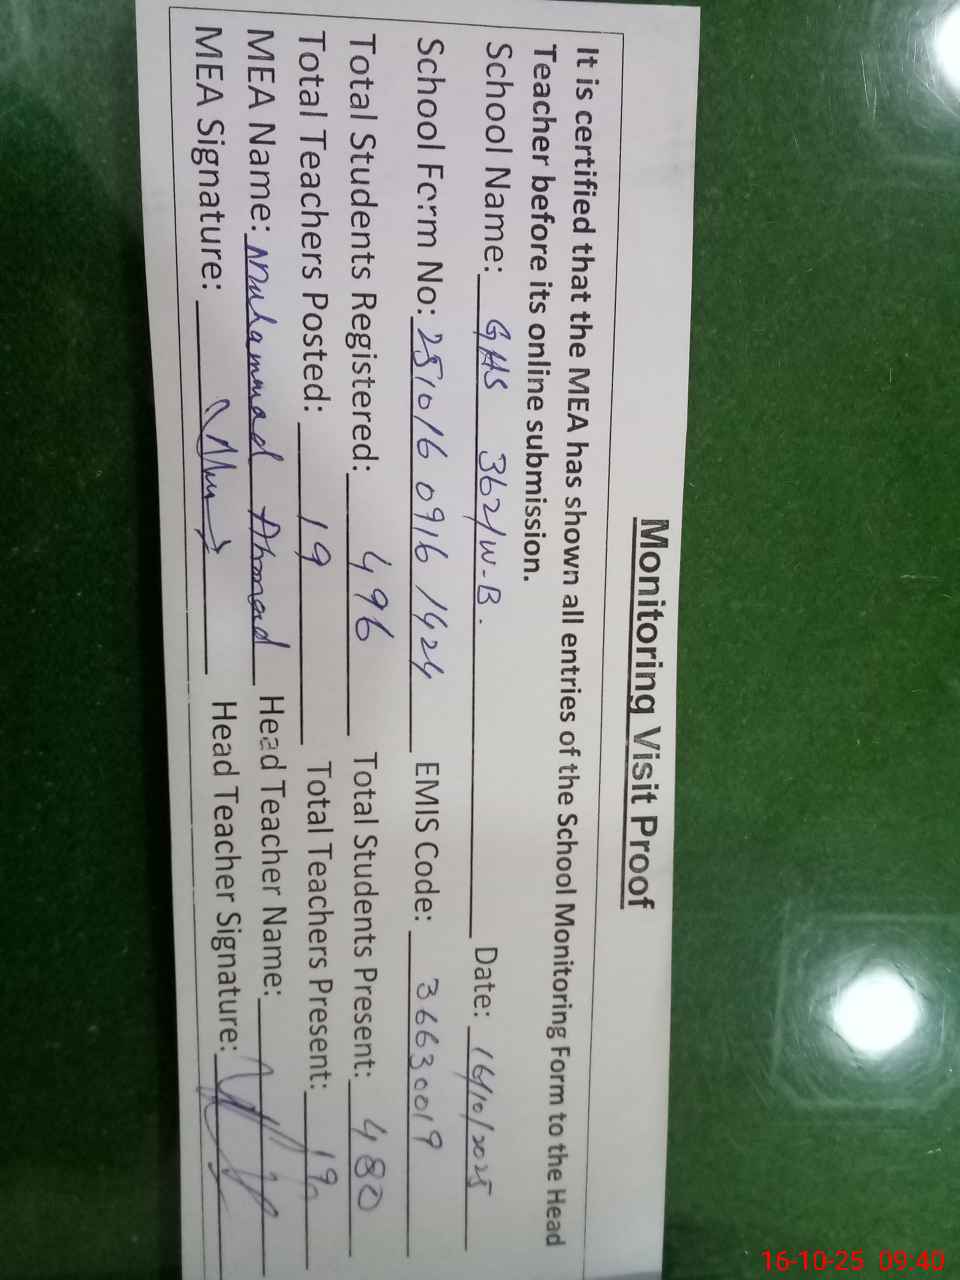 Monitoring Visit Proof
It is certified that the MEA has shown all entries of the School Monitoring Form to the Head
Teacher before its online submission.
School Name: GHS 362/W-B. Date: 16/10/2025
School Form No: 251016 0916 1424 EMIS Code: 36630019
Total Students Registered: 496 Total Students Present: 480
Total Teachers Posted: 19 Total Teachers Present: 19
MEA Name: Muhammad Ahmad Head Teacher Name:
MEA Signature: Head Teacher Signature:
16-10-25 09:40